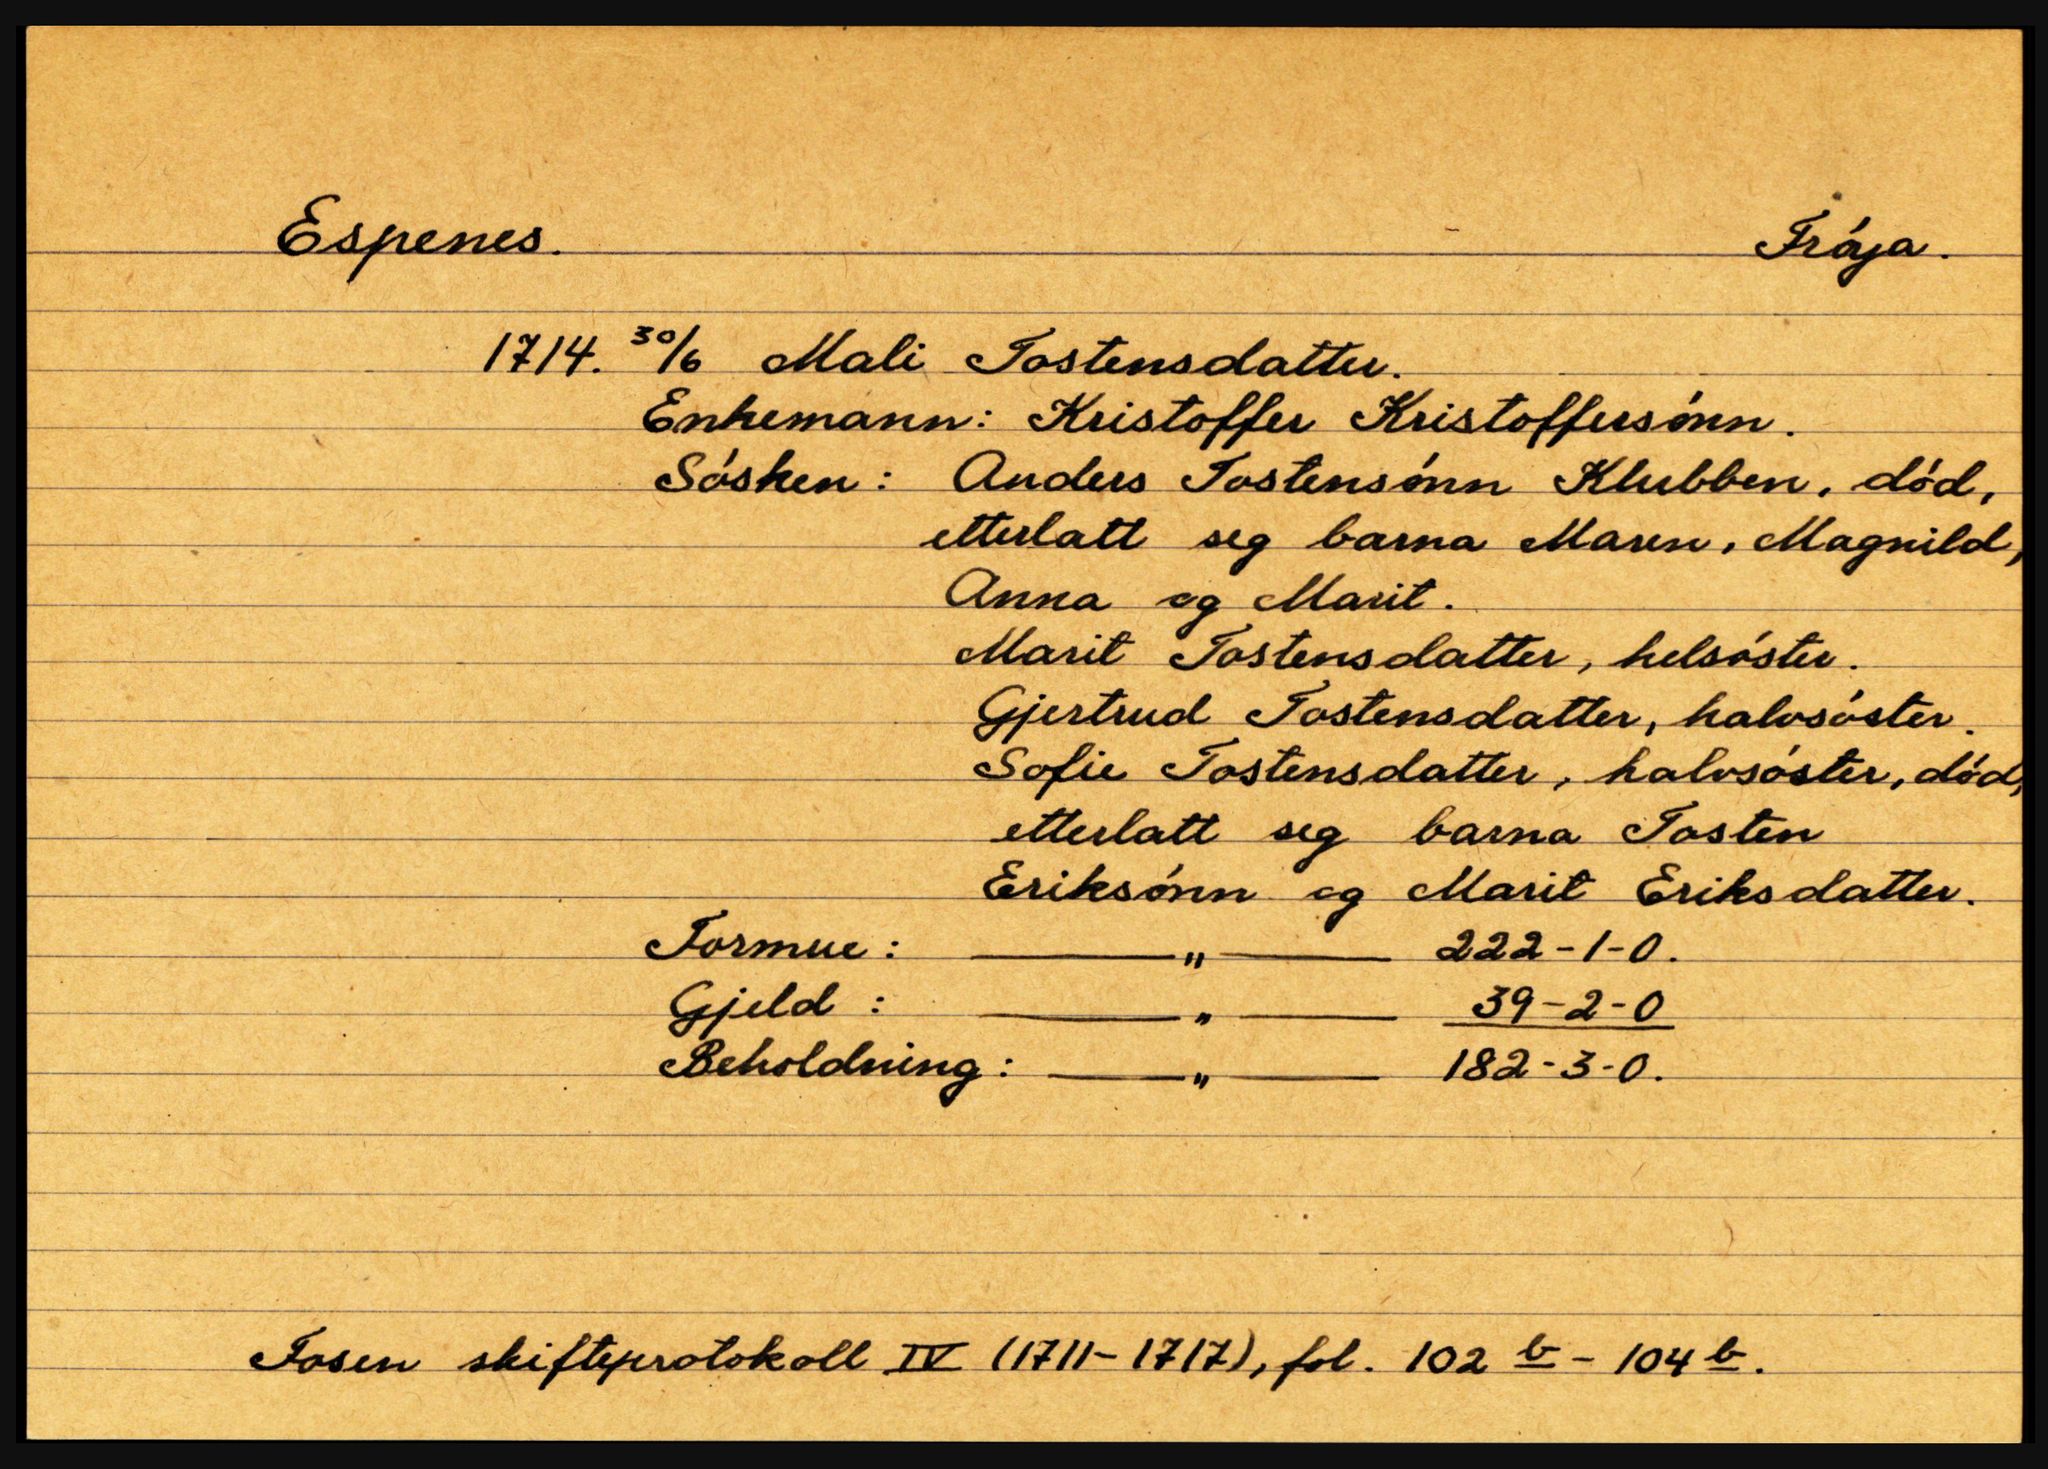 Espenes. Frøya.
1714. 30/6 Mali Tostensdatter.
Enkemann: Kristoffer Kristoffersønn.
Søsken: Anders Tostensønn Klubben, død,
etterlatt seg barna Maren, Magnild,
Anna og Marit.
Marit Tostensdatter, helsøster.
Gjertrud Tostensdatter, halvsøster.
Sofie Tostensdatter, halvsøster, død,
etterlatt seg barna Tosten
Eriksønn og Marit Eriksdatter.
Formue: — " — 222-1-0.
Gjeld: — " — 39-2-0
Beholdning: — " — 182-3-0.
Fosen skifteprotokoll IV (1711-1717), fol. 102 b - 104 b.